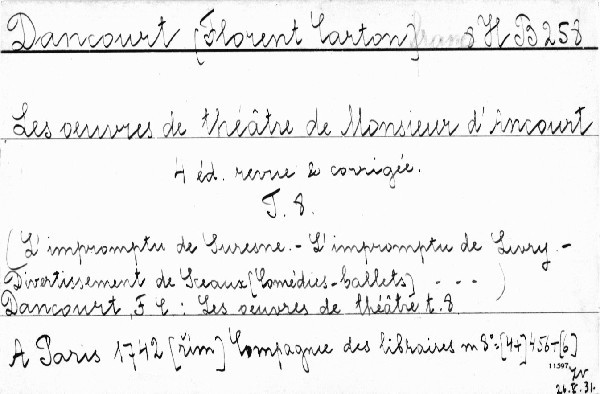 Dancourt [Florent Carton] franc 8 H B 258
Les oeuvres de théâtre de Monsieur d'Ancourt
4 éd. revue & corrigée.
T. 8.
(L'impromptu de Suresne. - L'impromptu de Livry. -
Divertissement de Sceaux [Comédies-ballets] - - - )
Dancourt, F C : Les oeuvres de théâtre t. 8
A Paris 1742 [řím] Compagnie des libraires m 8°: [4+] 456+[6]
11597
26.8.31.